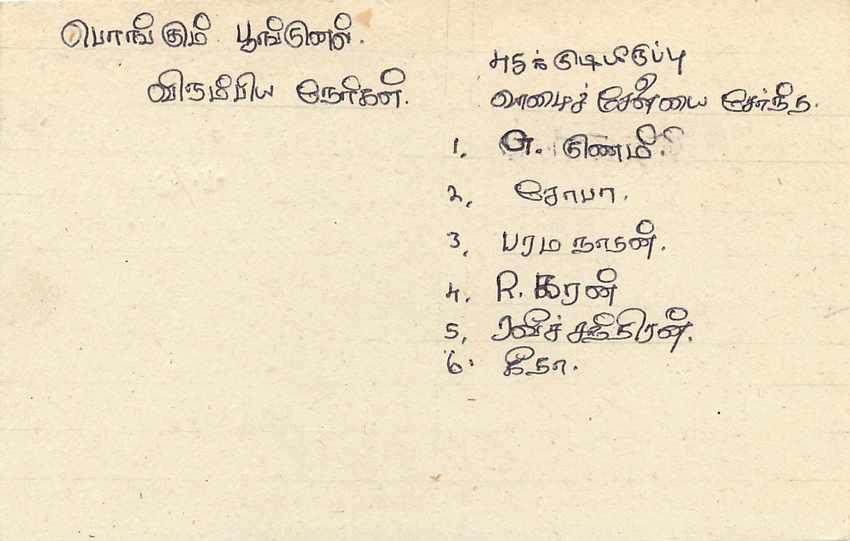 பொங்கும் பூங்குனல்.
விரும்பிய நேர்கள்.
புதுக்குடியிருப்பு
சேனையை சேர்ந்த.
1. G. குணம்.
2, சோபா.
3, பரமநாதன்.
4. R. கரன்
5, ரவீச்சந்திரன்.
6. கீதா.